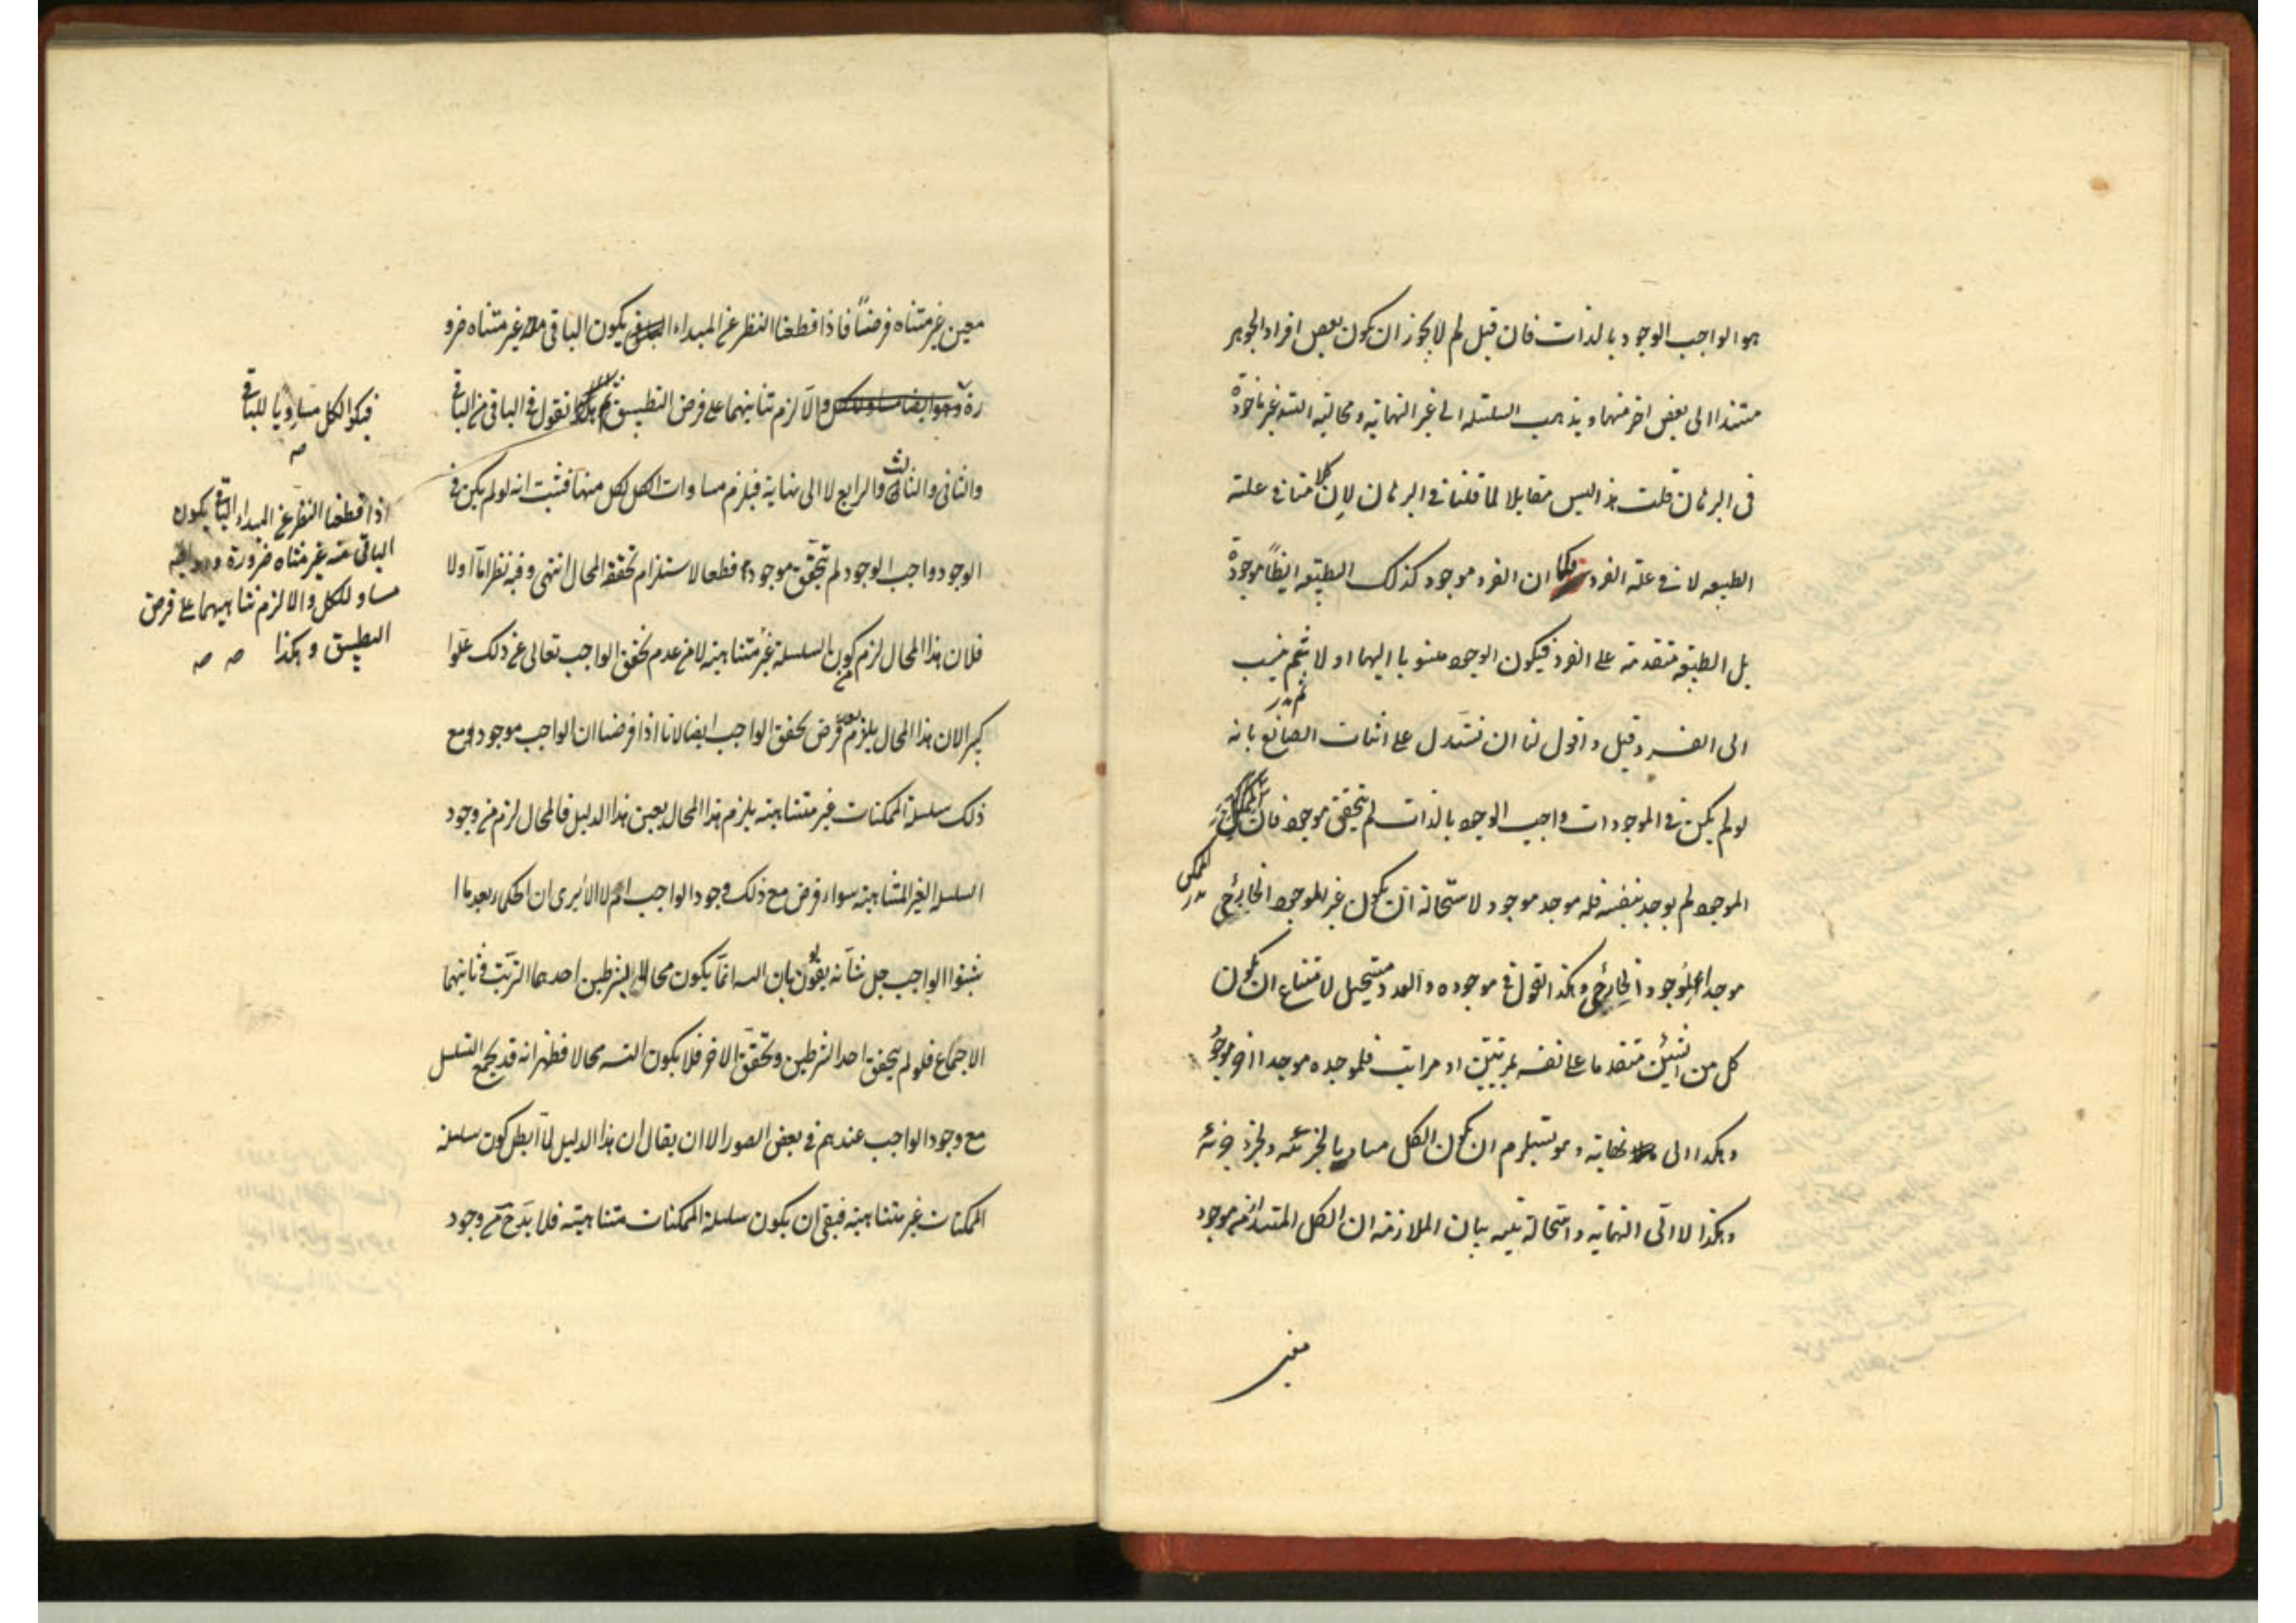 هو الواجب الوجود بالذات فان قيل لم لا يجوز ان يكون بعض افراد الجوهر
مستندا الى بعض اخر منهما ويذهب السلسله الى غير النهاية ومحالية التسه غير ماخوذة
فى البرهان قلت هذا ليس مقابلا لما قلنا فى البرهان لان كلامنا فى علته
الطبيعه لا فى علته الفرد فكما ان الفرد موجود كذلك الطبيعه ايضاً موجودة
بل الطبيعة متقدمة على الفرد فيكون الوجود منسوبا اليها اولا ثم ينسب
الى الفرد وقيل واقول لنا ان نستدل على اثبات الصانع بانه
لو لم يكن فى الموجودات واجب الوجود بالذات لم يتحقق موجود فان
الموجود لم يوجد بنفسه فله موجد موجود لاستحالة ان يكون غير الموجود الخارجى
موجدا للموجود الخارجى وهكذا نقول فى موجوده والدور مستحيل لامتناع ان يكون
كل من الشيئين متقدما على نفسه بمرتبتين او مراتب فلموجده موجد اخر موجود
وهكذا الى نهاية وهو يستلزم ان يكون الكل مساويا لجزئه ولجزء جزئه
وهكذا لا الى النهاية واستحالته بينه بيان الملازمه ان الكل المبتدأ من موجود
معين
معين غير متناه فرضاً فاذا قطعنا النظر عن المبداء يكون الباقى منه غير متناه ضرو
رة والا لزم تناهيهما على فرض التطبيق ثم نقول فى الباقى من الباقى
والثانى والثالث والرابع لا الى نهاية فيلزم مساوات الكل لكل منها فثبت انه لو لم يكن فى
الوجود واجب الوجود لم يتحقق موجود قطعا لاستلزام تحققه المحال انتهى وفيه نظر اما اولا
فلان هذا المحال لزم من كون السلسلة غير متناهية لا من عدم تحقق الواجب تعالى عن ذلك علوا
كبيرا لان هذا المحال يلزم فرض تحقق الواجب ايضا لانا اذا فرضنا ان الواجب موجود ومع
ذلك سلسلة الممكنات غير متناهية يلزم هذا المحال بعين هذا الدليل فالمحال لزم من وجود
السلسلة الغير المتناهية سواء فرض مع ذلك وجود الواجب ام لا الا يرى ان الحكماء بعد ما ا
ثبتوا الواجب جل شأنه يقولون بان التسه انما يكون محالا بشرطين احدهما الترتب وثانيهما
الاجتماع فلو لم يتحقق احد الشرطين وتحقق الاخر فلا يكون التسه محالا فظهر انه قد يجمع التسلسل
مع وجود الواجب عندهم فى بعض الصور الا ان يقال ان هذا الدليل لما ابطل كون سلسلة
الممكنات غير متناهية فبقى ان يكون سلسلة الممكنات متناهية فلا بد ح من وجود
فيكون الكل مساويا للباقى
صه
اذا قطعنا النظر عن المبداء الباقى يكون
الباقى منه غير متناه ضرورة
مساو للكل والا لزم تناهيهما على فرض
التطبيق وهكذا صه صه